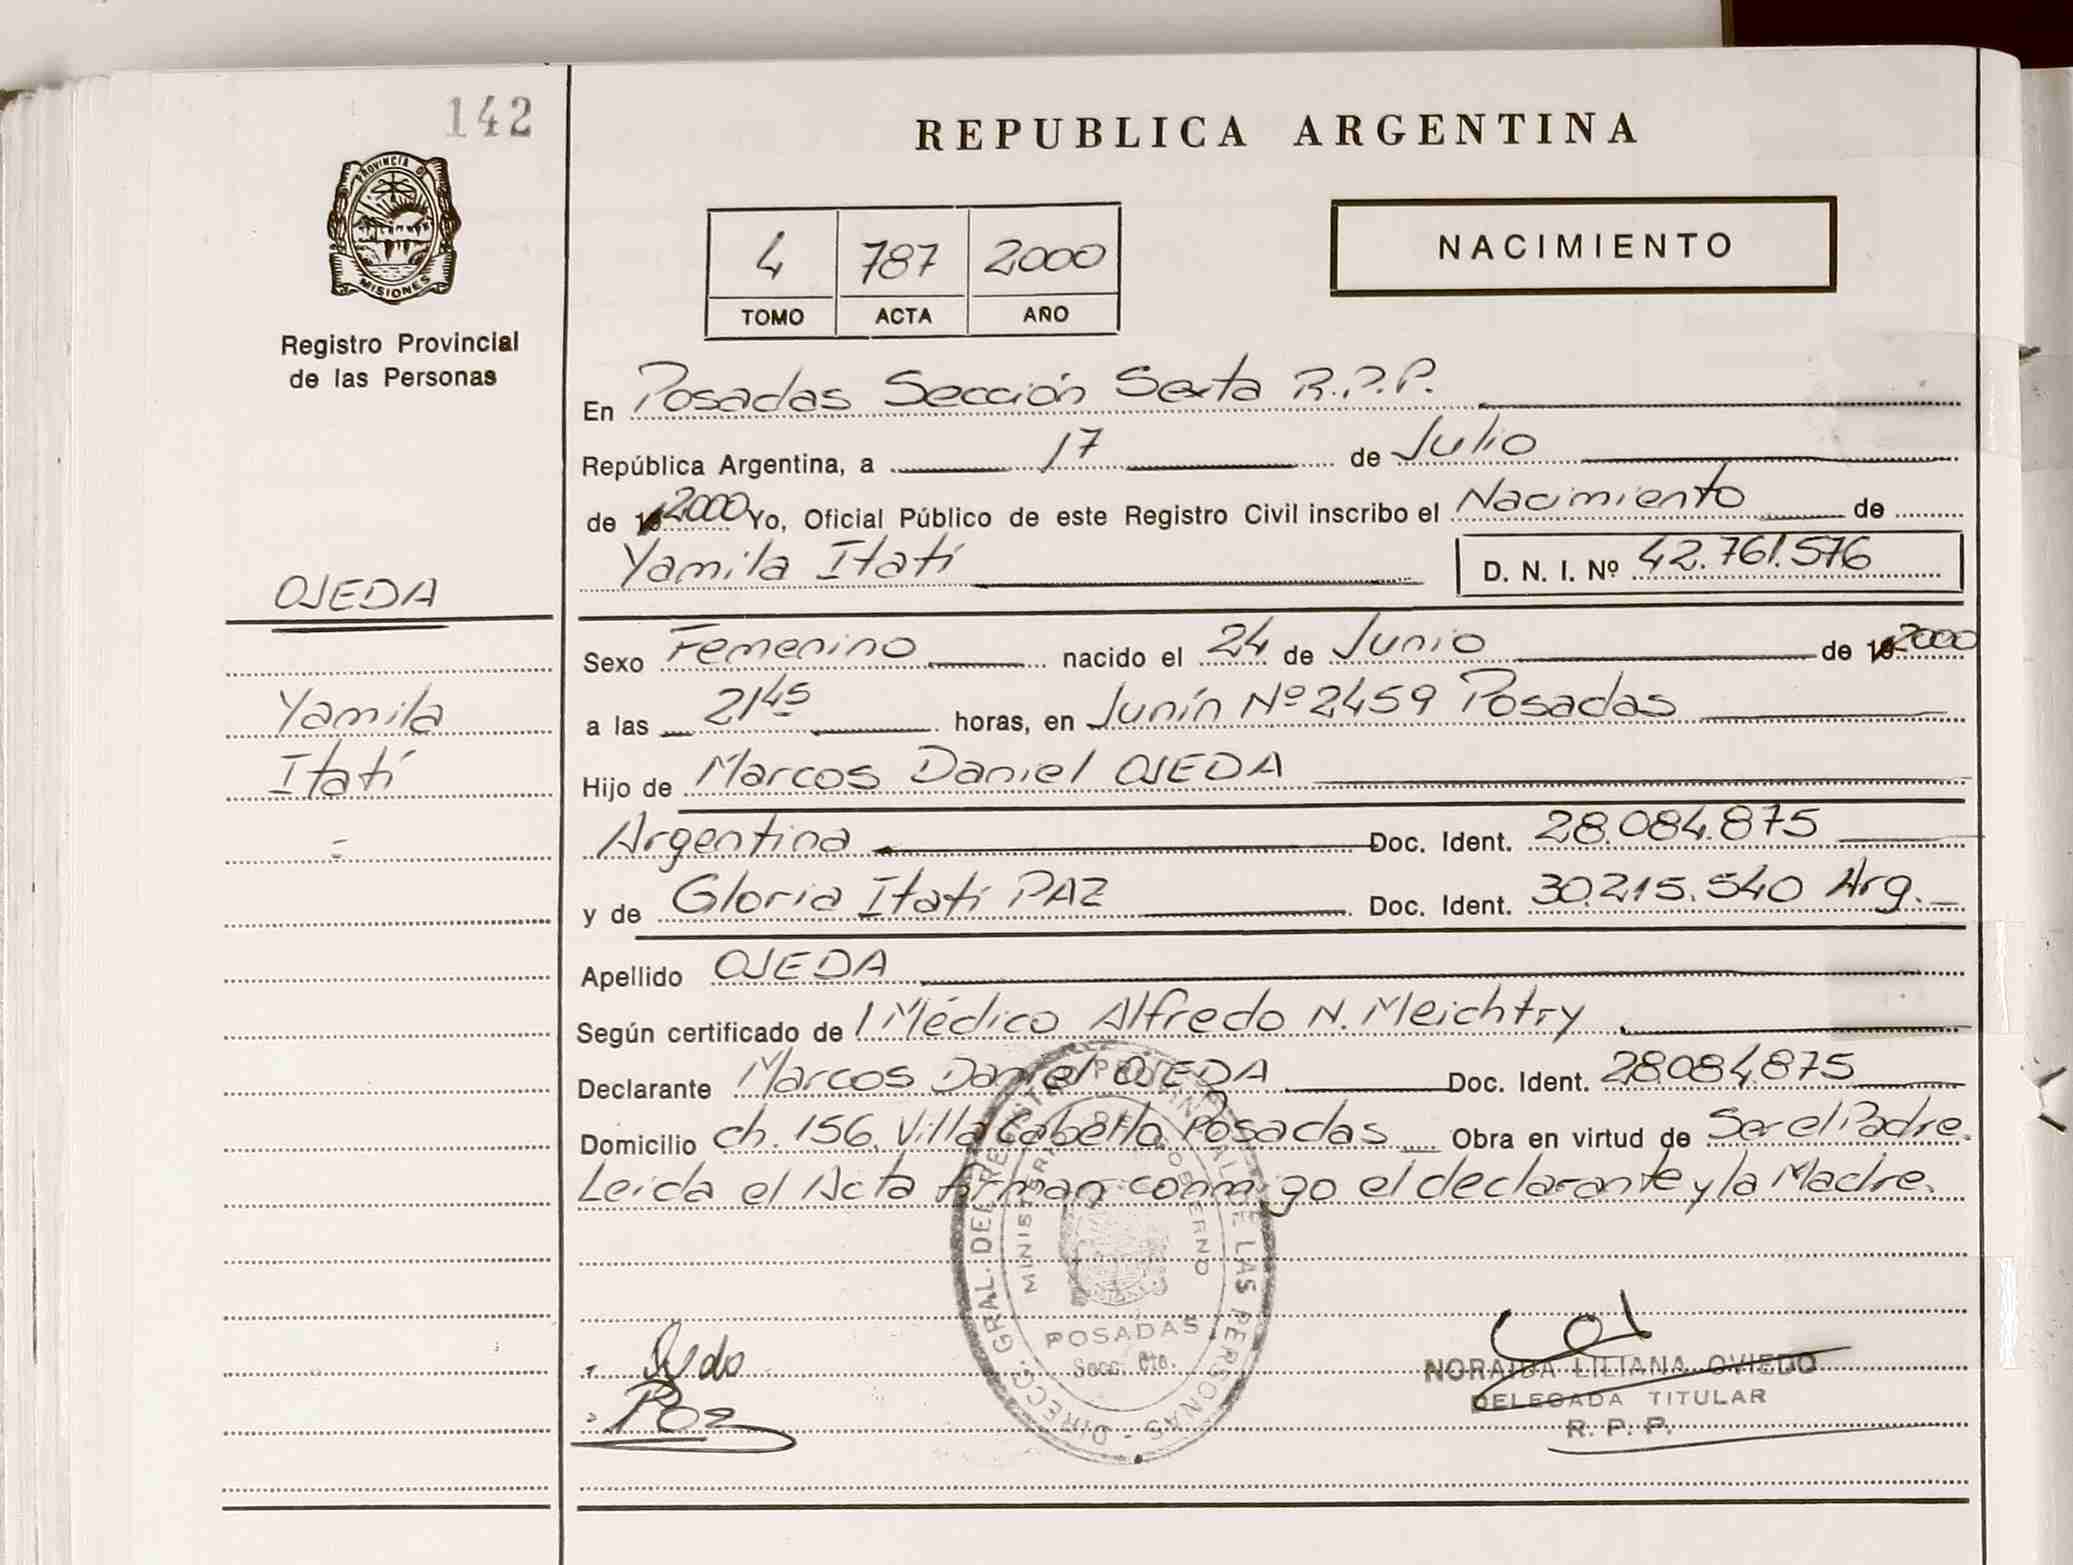 142
PROVINCIA DE
MISIONES
Registro Provincial
de las Personas
OJEDA
Yamila
Itatí
REPUBLICA ARGENTINA
4 787 2000
TOMO ACTA AÑO
NACIMIENTO
En Posadas Sección Sexta R.P.P.
República Argentina, a 17 de Julio
de 2000 Yo, Oficial Público de este Registro Civil inscribo el Nacimiento de
Yamila Itatí D. N. I. Nº 42.761.576
Sexo Femenino nacido el 24 de Junio de 2000
a las 21 45 horas, en Junín Nº 2459 Posadas
Hijo de Marcos Daniel OJEDA
Argentina Doc. Ident. 28.084.875
y de Gloria Itatí PAZ Doc. Ident. 30.215.540 Arg.
Apellido OJEDA
Según certificado de l Médico Alfredo N. Meichtry
Declarante Marcos Daniel OJEDA Doc. Ident. 28.084.875
Domicilio ch. 156. Villa Cabello Posadas Obra en virtud de Ser el Padre.
Leida el Acta firman conmigo el declarante y la Madre.
DIRECC. GRAL. DEL REGISTRO PROVINCIAL DE LAS PERSONAS
MINISTERIO DE GOBIERNO
POSADAS
Paz
NORAIDA LILIANA OVIEDO
DELEGADA TITULAR
R. P. P.